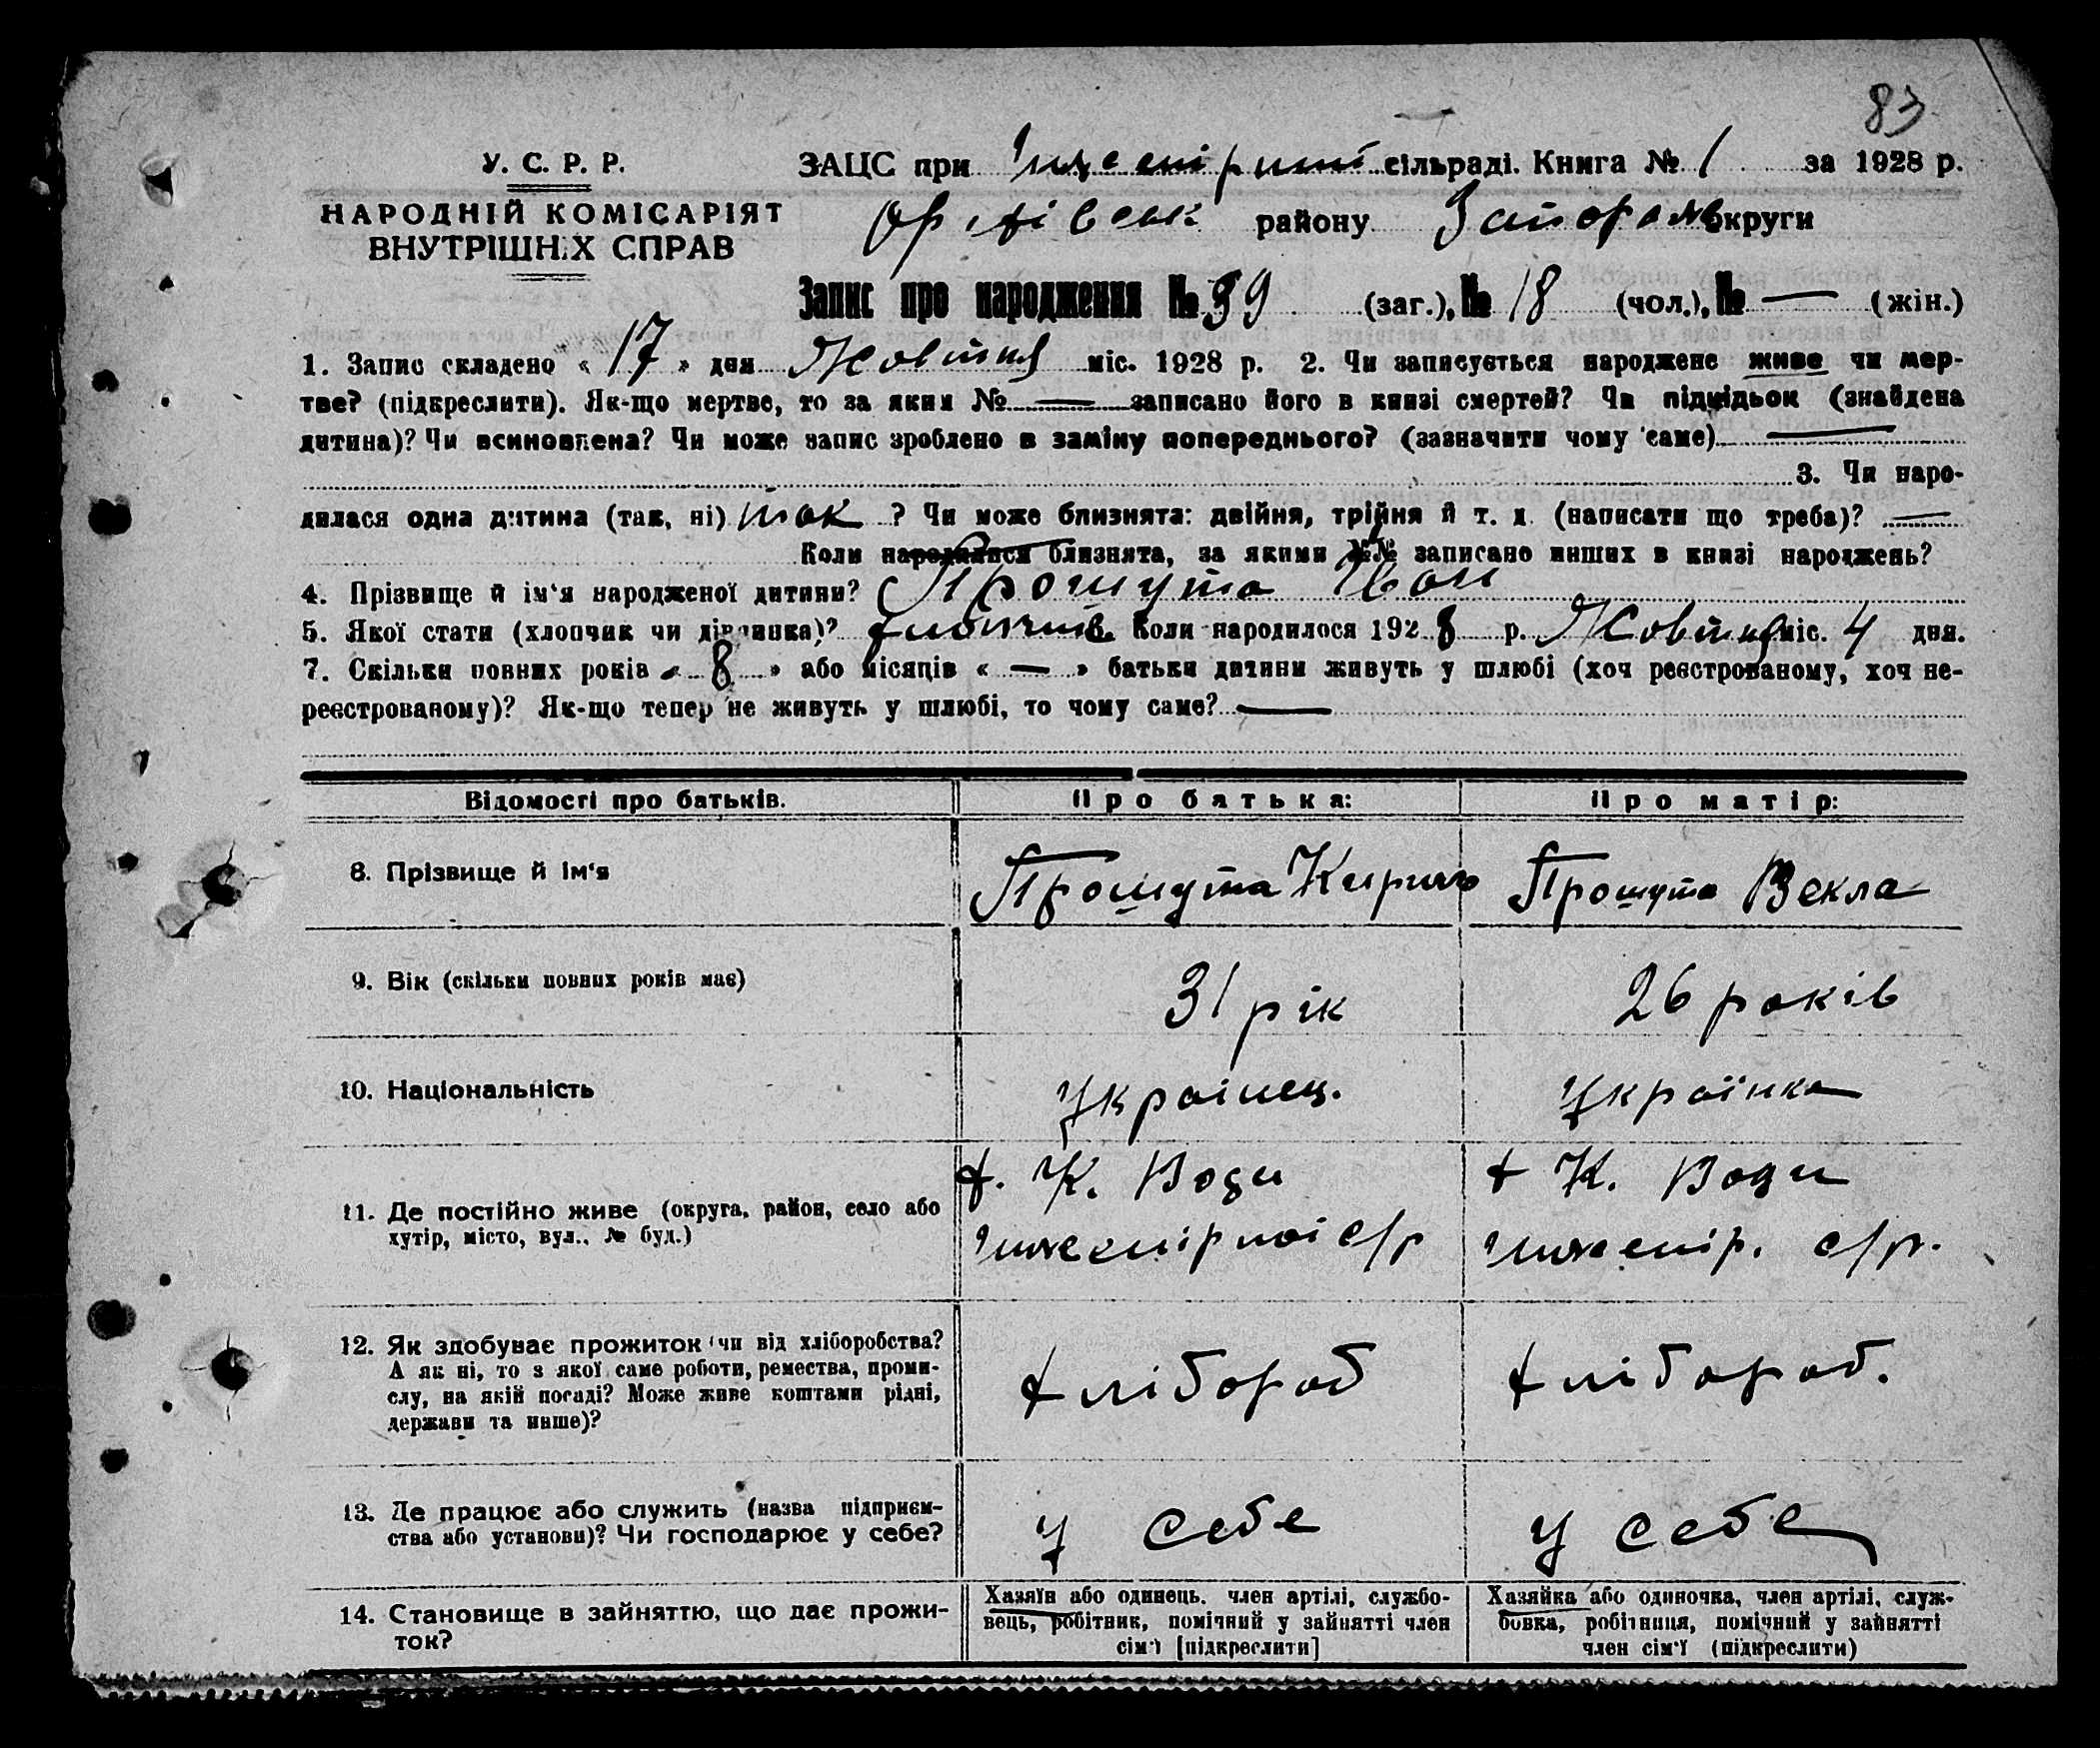 83
У. С. Р. Р.
НАРОДНІЙ КОМІСАРІЯТ
ВНУТРІШНІХ СПРАВ
ЗАЦС при сільраді. Книга № 1 за 1928 р.
району Запорож округи
Запис про народження № 39 (заг.), № 18 (чол.), № — (жін.)
1. Запис складено « 17 » дня Жовтня міс. 1928 р. 2. Чи записується народжене живе чи мер-
тве? (підкреслити). Як-що мертве, то за яким № — записано його в книзі смертей? Чи підкідьок (знайдена
дитина)? Чи всиновлена? Чи може запис зроблено в заміну попереднього? (зазначити чому саме) —
3. Чи наро-
дилася одна дитина (так, ні) так ? Чи може близнята: двійня, трійня й т. д. (написати що треба)? —
Коли народилися близнята, за якими №№ записано инших в книзі народжень?
4. Прізвище й ім'я народженої дитини? Прошута Іван
5. Якої стати (хлопчик чи дівчинка)? хлопчик Коли народилося 1928 р. Жовтня міс. 4 дня.
7. Скільки повних років « 8 » або місяців « — » батьки дитини живуть у шлюбі (хоч реєстрованому, хоч не-
реєстрованому)? Як-що тепер не живуть у шлюбі, то чому саме? —
Відомості про батьків. Про батька: Про матір:
8. Прізвище й ім'я Прошута Кирило Прошута Векла
9. Вік (скільки повних років має) 31 рік 26 років
10. Національність Украінец. Українка
11. Де постійно живе (округа, район, село або
хутір, місто, вул., № буд.)
х. К. Води
Инженірноі с/р
х К. Води
Инженір. с/р.
12. Як здобуває прожиток (чи від хліборобства?
А як ні, то з якої саме роботи, ремества, проми-
слу, на якій посаді? Може живе коштами рідні,
держави та инше)?
хлібороб
хлібороб.
13. Де працює або служить (назва підприєм-
ства або установи)? Чи господарює у себе?
у себе
у себе
14. Становище в зайняттю, що дає прожи-
ток?
Хазяїн або одинець, член артілі, службо-
вець, робітник, помічний у зайнятті член
сім'ї [підкреслити]
Хазяйка або одиночка, член артілі, служ-
бовка, робітниця, помічний у зайнятті
член сім'ї (підкреслити)